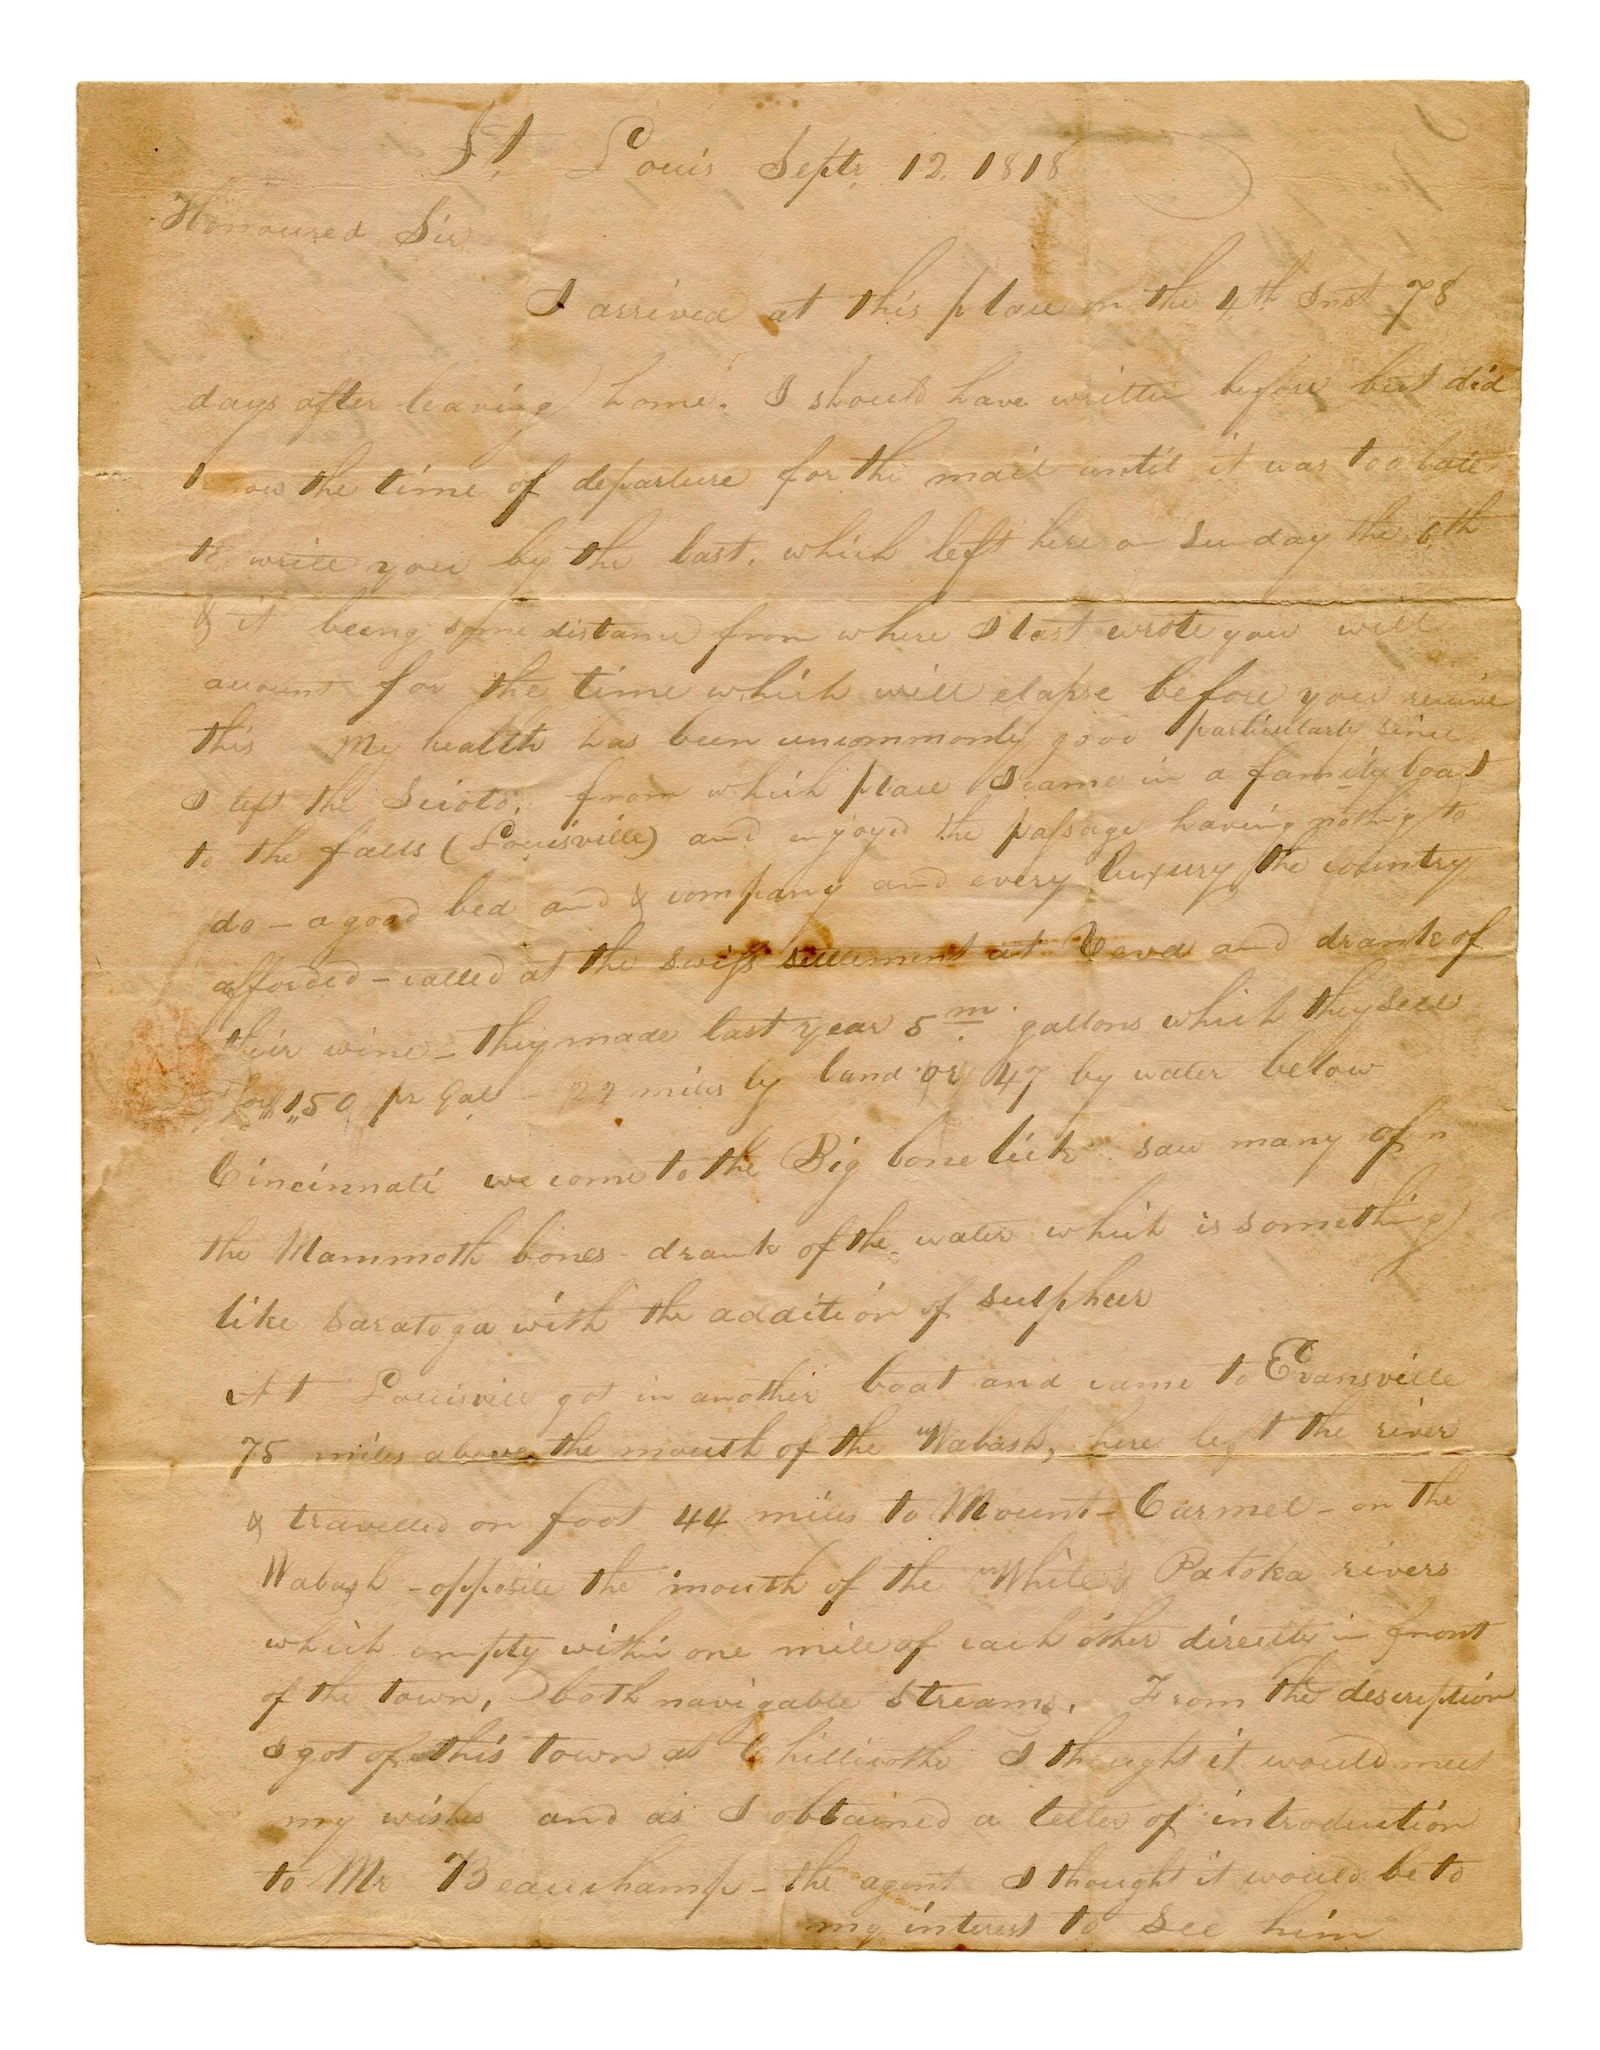 St. Louis Septr. 12. 1818
Honoured Sir
I arrived at this place on the 4th Inst 78
days after leaving home. I should have written before but did
now the time of departure for the mail until it was too late
to write you by the last, which left here on Sunday the 6th
& it being some distance from where I last wrote you will
account for the time which will elapse before you receive
this My health has been uncommonly good particularly since
I left the Scioto. from which place I came in a family boat
to the falls (Louisville) and enjoyed the passage having nothing to
do – a good bed and & company and every luxury the country
afforded – called at the swiss settlement at Vevá and drank of
their wine – they made last year 5 m. gallons which they sell
for 1,50 pr Gal – 22 miles by land or 47 by water below
Cincinnati we come to the Big bone lick saw many of
the Mammoth bones – drank of the water which is something
like Saratoga with the addition of sulpher
At Louisvill got in another boat and came to Evansville
75 miles above the mouth of the Wabash, here left the river
& travelled on foot 44 miles to Mount-Carmel – on the
Wabash – opposite the mouth of the White & Patoka rivers
which empty within one mile of each other directly in front
of the town, both navigable streams. From the description
I got of this town at Chillicothe I thought it would meet
my wishes and as I obtained a letter of introduction
to Mr Beauchamp – the agent I thought it would be to
my interest to see him